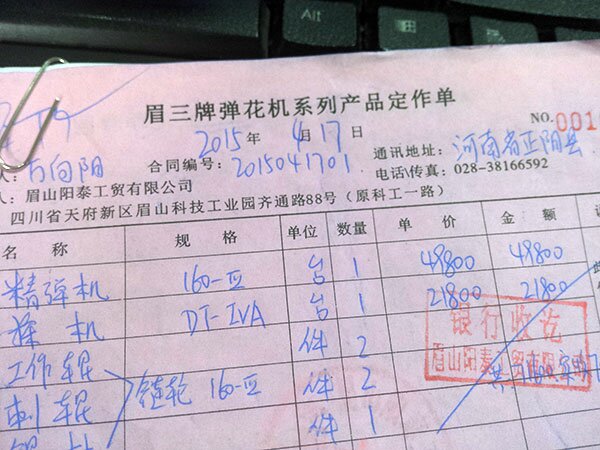 Alt
眉三牌弹花机系列产品定作单
NO.001
2015年 4月17日
人:万向阳 合同编号:2015041701 通讯地址:河南省正阳县
电话\传真:028-38166592
人:眉山阳泰工贸有限公司
四川省天府新区眉山科技工业园齐通路88号(原科工一路)
名称 规格 单位 数量 单价 金额
精弹机 160-Ⅲ 台 1 49800 49800
机 DT-IVA 台 1 21800 21800
工作辊 件 2
刺辊 链轮 160-Ⅲ 件 2
件 1
银行收讫
眉山阳泰工贸有限公司